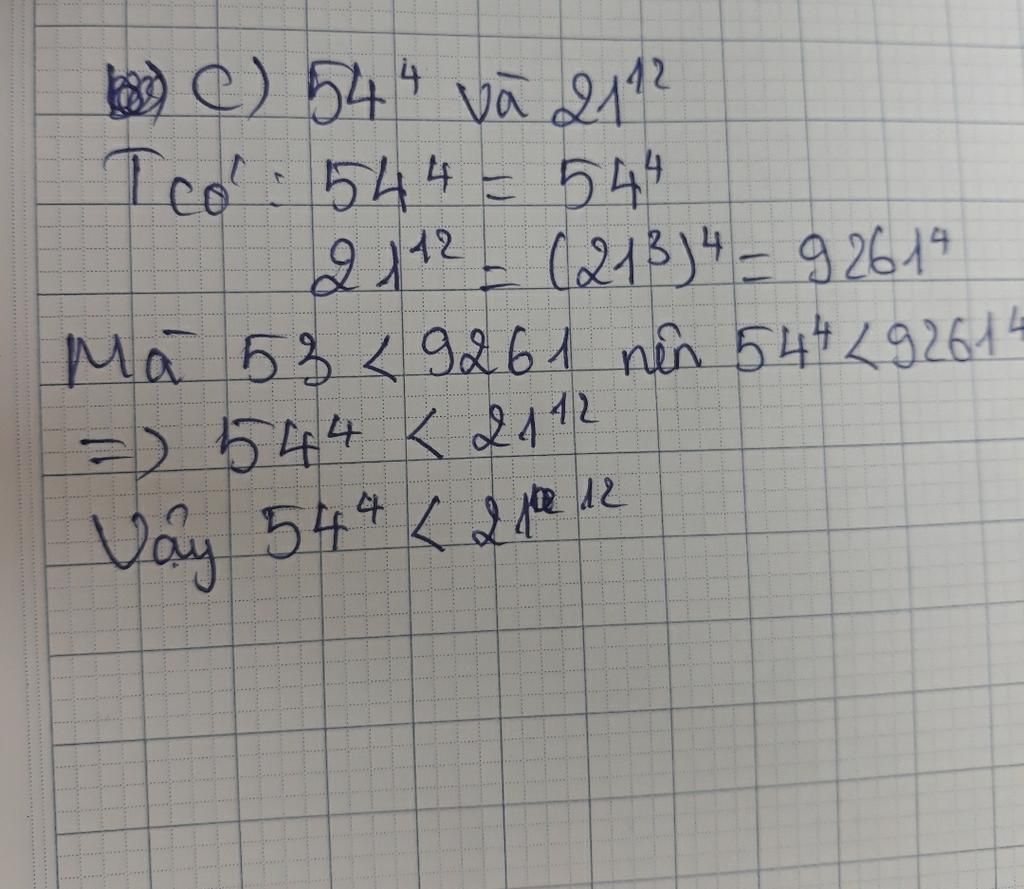 C) 54⁴ và 21¹²
Tcó: 54⁴ = 54⁴
21¹² = (21³)⁴ = 9261⁴
Mà 53 < 9261 nên 54⁴ < 9261⁴
=> 54⁴ < 21¹²
Vậy 54⁴ < 21¹²